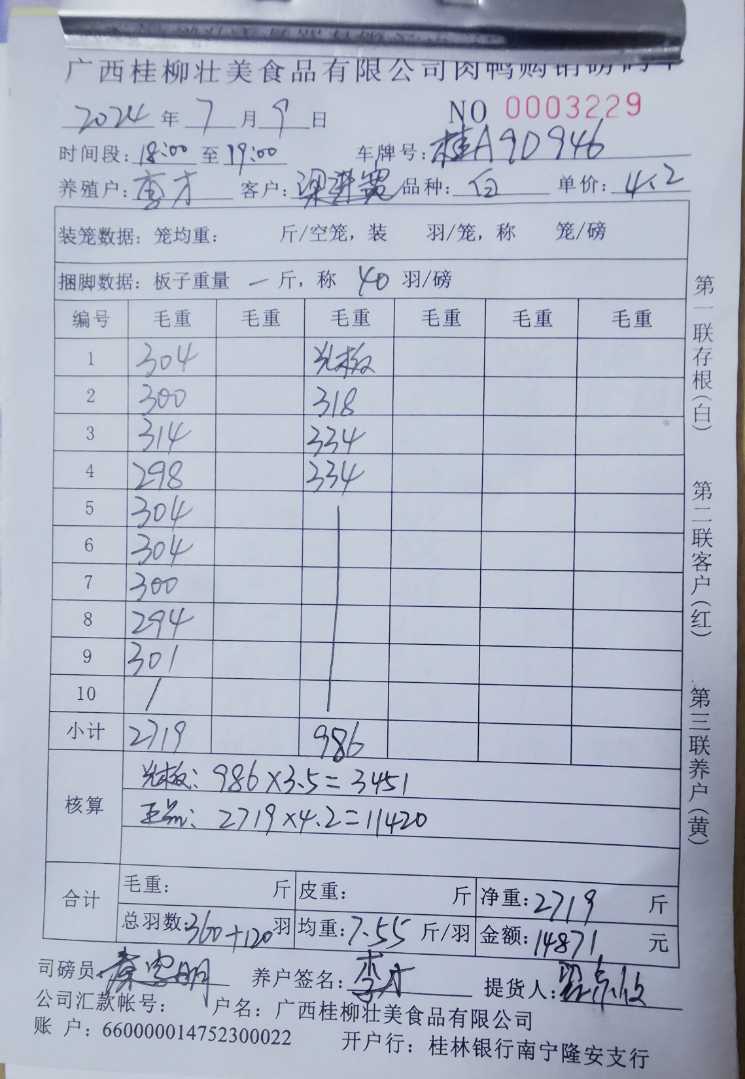 广西桂柳壮美食品有限公司肉鸭购销磅码单
2024 年 7 月 9 日 NO 0003229
时间段: 18:00 至 19:00 车牌号: 桂A9D946
养殖户: 李才 客户: 品种: 白 单价: 4.2
装笼数据: 笼均重: 斤/空笼, 装 羽/笼, 称 笼/磅
捆脚数据: 板子重量 一 斤, 称 40 羽/磅
编号 毛重 毛重 毛重 毛重 毛重 毛重
1 304 光板
2 300 318
3 314 334
4 298 334
5 304
6 304
7 300
8 294
9 301
10 /
小计 2719 986
核算 光板: 986×3.5=3451
正品: 2719×4.2=11420
合计 毛重: 斤 皮重: 斤 净重: 2719 斤
总羽数: 360+120 羽 均重: 7.55 斤/羽 金额: 14871 元
司磅员: 养户签名: 李才 提货人:
公司汇款帐号: 户名: 广西桂柳壮美食品有限公司
账 户: 660000014752300022 开户行: 桂林银行南宁隆安支行
第一联存根(白)
第二联客户(红)
第三联养户(黄)